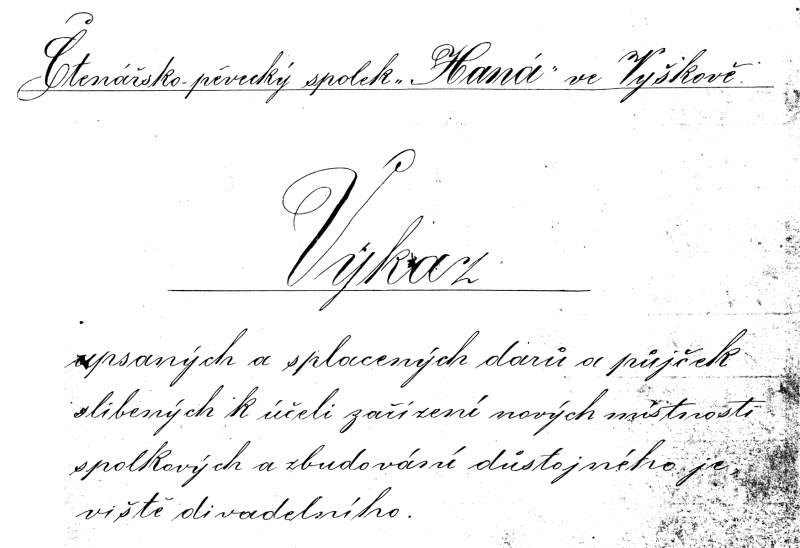 Čtenářsko-pěvecký spolek „Haná" ve Vyškově.
Výkaz
upsaných a splacených darů a půjček
slibených k účeli zařízení nových místností
spolkových a zbudování důstojného je„
viště divadelního.